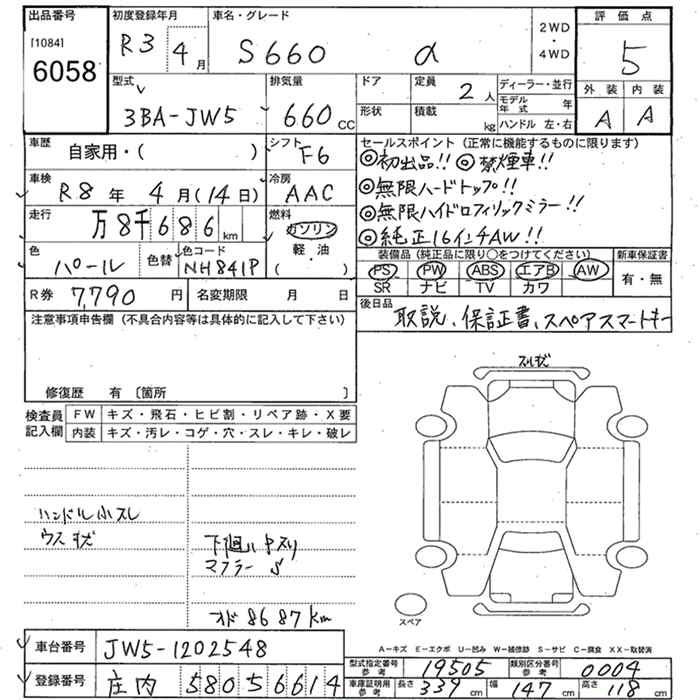 出品番号 初度登録年月 車名・グレード 2WD・4WD 評価点
[1084] 6058 R3年4月 S660 α 5
型式 排気量 ドア 定員 2人 ディーラー・並行 外装 内装
3BA-JW5 660CC 形状 積載 kg モデル年式 年 A A
ハンドル 左・右
車歴 自家用・( ) シフト F6 セールスポイント(正常に機能するものに限ります)
◎初出品!! ◎禁煙車!!
車検 R8年4月(14日) 冷房 AAC ◎無限ハードトップ!!
走行 万8千686km 燃料 ガソリン 軽・油 ( ) ◎無限ハイドロフィリックミラー!!
◎純正16インチAW!!
色 パール 色替 色コード NH841P 装備品(純正品に限り○をつけてください) 新車保証書
PS PW ABS エアB AW 有・無
SR ナビ TV カワ
R券 7,790円 名変期限 月 日 後日品
取説、保証書、スペアスマートキー
注意事項申告欄(不具合内容等は具体的に記入して下さい)
修復歴 有〔箇所 〕
検査員記入欄 FW キズ・飛石・ヒビ割・リペア跡・X要
内装 キズ・汚レ・コゲ・穴・スレ・キレ・破レ
ハンドル小スレ
ウス状
下廻り中スリ
マフラー 〃
オド 8687km
スペア
A-キズ E-エクボ U-凹み W-補修跡 S-サビ C-腐食 XX-取替済
車台番号 JW5-1202548
型式指定番号 参考 19505 類別区分番号 参考 0004
登録番号 庄内 580 5 6614
車庫証明用 参考 長さ 339cm 幅 147cm 高さ 118cm